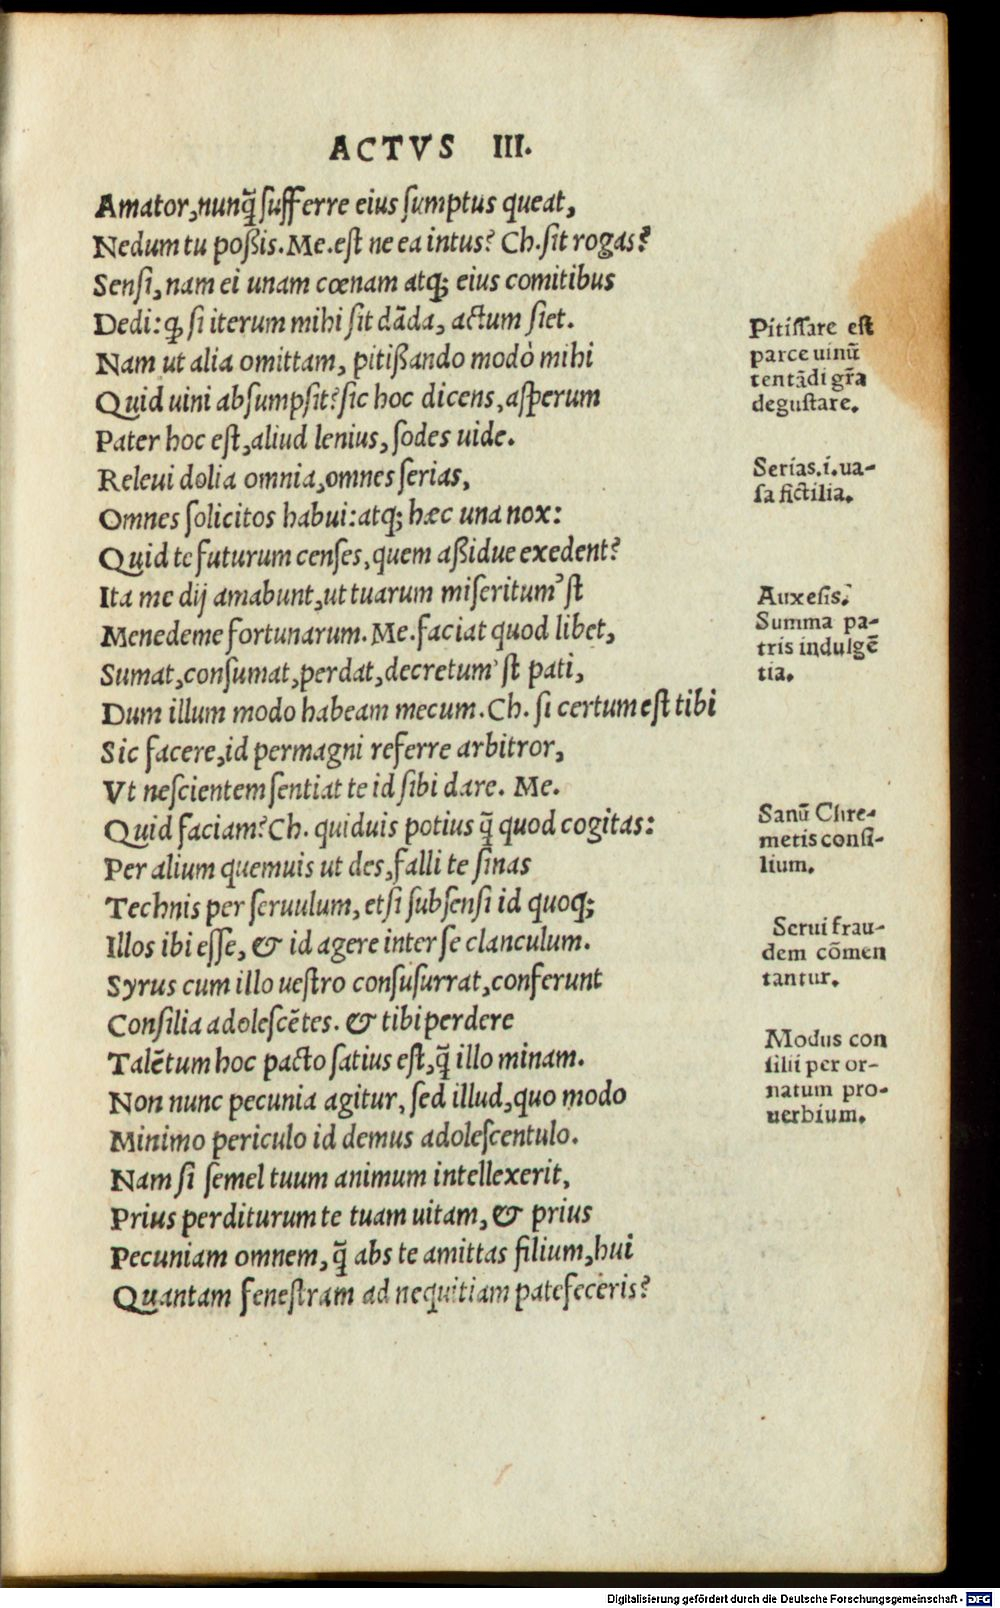 ACTVS III.
Amator, nunq̃ sufferre eius sumptus queat,
Nedum tu poßis. Me. est ne ea intus? Ch. sit rogas?
Sensi, nam ei unam cœnam atq; eius comitibus
Dedi: ꝙ si iterum mihi sit dāda, actum siet.
Nam ut alia omittam, pitißando modò mihi
Quid uini absumpsit? sic hoc dicens, asperum
Pater hoc est, aliud lenius, sodes uide.
Releui dolia omnia, omnes serias,
Omnes solicitos habui: atq; hæc una nox:
Quid te futurum censes, quem aßidue exedent?
Ita me dij amabunt, ut tuarum miseritum'st
Menedeme fortunarum. Me. faciat quod libet,
Sumat, consumat, perdat, decretum'st pati,
Dum illum modo habeam mecum. Ch. si certum est tibi
Sic facere, id permagni referre arbitror,
Vt nescientem sentiat te id sibi dare. Me.
Quid faciam? Ch. quiduis potius q̃ quod cogitas:
Per alium quemuis ut des, falli te sinas
Technis per seruulum, etsi subsensi id quoq;
Illos ibi esse, & id agere inter se clanculum.
Syrus cum illo uestro consusurrat, conferunt
Consilia adolescētes. & tibi perdere
Talētum hoc pacto satius est, q̃ illo minam.
Non nunc pecunia agitur, sed illud, quo modo
Minimo periculo id demus adolescentulo.
Nam si semel tuum animum intellexerit,
Prius perditurum te tuam uitam, & prius
Pecuniam omnem, q̃ abs te amittas filium, hui
Quantam fenestram ad nequitiam patefeceris?
Pitissare est
parce uinū
tentādi gr̃a
degustare.
Serias.i.ua-
sa fictilia.
Auxesis.
Summa pa-
tris indulgē
tia.
Sanū Chre-
metis consi-
lium.
Serui frau-
dem cōmen
tantur.
Modus con
silii per or-
natum pro-
uerbium.
Digitalisierung gefördert durch die Deutsche Forschungsgemeinschaft - DFG